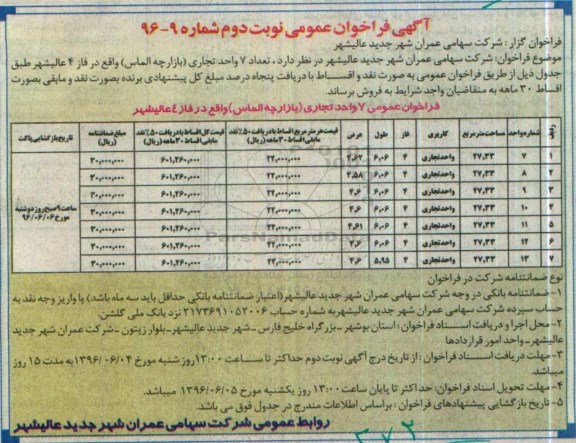 آگهی فراخوان عمومی نوبت دوم شماره ۹-۹۶
فراخوان گزار: شرکت سهامی عمران شهر جدید عالیشهر
موضوع فراخوان: شرکت سهامی عمران شهر جدید عالیشهر در نظر دارد، تعداد ۷ واحد تجاری (بازارچه الماس) واقع در فاز ۴ عالیشهر طبق
جدول ذیل از طریق فراخوان عمومی به صورت نقد و اقساط با دریافت پنجاه درصد مبلغ کل پیشنهادی برنده بصورت نقد و مابقی بصورت
اقساط ۳۰ ماهه به متقاضیان واجد شرایط به فروش برساند.
فراخوان عمومی ۷ واحد تجاری (بازارچه الماس) واقع در فاز ۴ عالیشهر
ردیف شماره واحد مساحت مترمربع کاربری فاز طول عرض قیمت هر مترمربع اقساط با دریافت ۵۰٪ نقد مابقی اقساط ۳۰ ماهه (ریال) قیمت کل اقساط با دریافت ۵۰٪ نقد مابقی اقساط ۳۰ ماهه (ریال) مبلغ ضمانتنامه (ریال) تاریخ بازگشایی پاکت
۱ ۷ ۲۷,۳۳ واحد تجاری ۴ ۶,۰۶ ۴,۶۲ ۲۲,۰۰۰,۰۰۰ ۶۰۱,۲۶۰,۰۰۰ ۳۰,۰۰۰,۰۰۰
۲ ۸ ۲۷,۳۳ واحد تجاری ۴ ۶,۰۶ ۴,۵۸ ۲۲,۰۰۰,۰۰۰ ۶۰۱,۲۶۰,۰۰۰ ۳۰,۰۰۰,۰۰۰
۳ ۹ ۲۷,۳۳ واحد تجاری ۴ ۶,۰۶ ۴,۶ ۲۲,۰۰۰,۰۰۰ ۶۰۱,۲۶۰,۰۰۰ ۳۰,۰۰۰,۰۰۰
۴ ۱۰ ۲۷,۳۳ واحد تجاری ۴ ۶,۰۶ ۴,۶ ۲۲,۰۰۰,۰۰۰ ۶۰۱,۲۶۰,۰۰۰ ۳۰,۰۰۰,۰۰۰ ساعت ۹ صبح روز دوشنبه مورخ ۹۶/۰۶/۰۶
۵ ۱۱ ۲۷,۳۳ واحد تجاری ۴ ۶,۰۶ ۴,۶۱ ۲۲,۰۰۰,۰۰۰ ۶۰۱,۲۶۰,۰۰۰ ۳۰,۰۰۰,۰۰۰
۶ ۱۲ ۲۷,۳۳ واحد تجاری ۴ ۶,۰۶ ۴,۶ ۲۲,۰۰۰,۰۰۰ ۶۰۱,۲۶۰,۰۰۰ ۳۰,۰۰۰,۰۰۰
۷ ۱۳ ۲۷,۳۳ واحد تجاری ۴ ۵,۹۵ ۴,۶ ۲۲,۰۰۰,۰۰۰ ۶۰۱,۲۶۰,۰۰۰ ۳۰,۰۰۰,۰۰۰
نوع ضمانتنامه شرکت در فراخوان
۱-ضمانتنامه بانکی در وجه شرکت سهامی عمران شهر جدید عالیشهر(اعتبار ضمانتنامه بانکی حداقل باید سه ماه باشد) یا واریز وجه نقد به
حساب سپرده شرکت سهامی عمران شهر جدید عالیشهر به شماره حساب ۲۱۷۳۶۹۱۰۵۲۰۰۶ نزد بانک ملی گلشن.
۲-محل اجرا و دریافت اسناد فراخوان: استان بوشهر-بزرگراه خلیج فارس-شهر جدید عالیشهر-بلوار زیتون-شرکت عمران شهر جدید
عالیشهر-واحد امور قراردادها
۳-مهلت دریافت اسناد فراخوان: از تاریخ درج آگهی نوبت دوم حداکثر تا ساعت ۱۳:۰۰ روز شنبه مورخ ۱۳۹۶/۰۶/۰۴ به مدت ۱۵ روز
میباشد.
۴-مهلت تحویل اسناد فراخوان: حداکثر تا پایان ساعت ۱۳:۰۰ روز یکشنبه مورخ ۱۳۹۶/۰۶/۰۵ میباشد.
۵-تاریخ بازگشایی پیشنهادهای فراخوان: براساس اطلاعات مندرج در جدول فوق می باشد.
روابط عمومی شرکت سهامی عمران شهر جدید عالیشهر